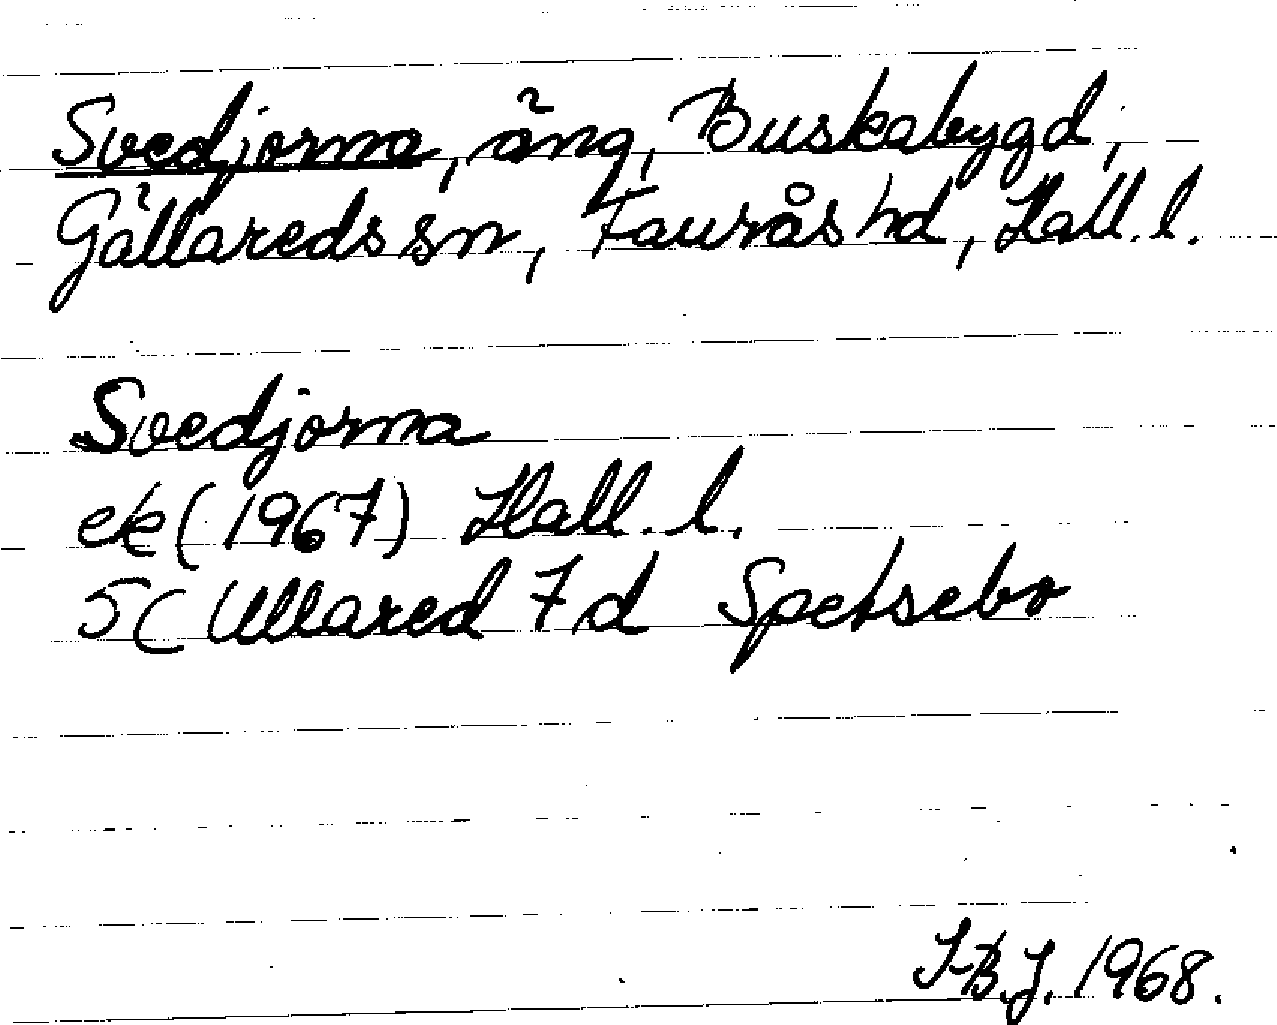 Svedjorna, äng, Buskabygd,
Gällareds sn, Faurås hd, Hall. l.
Svedjorna
ek (1967) Hall. l.
5C Ullared 7d Spetsebo
I-B.J. 1968.